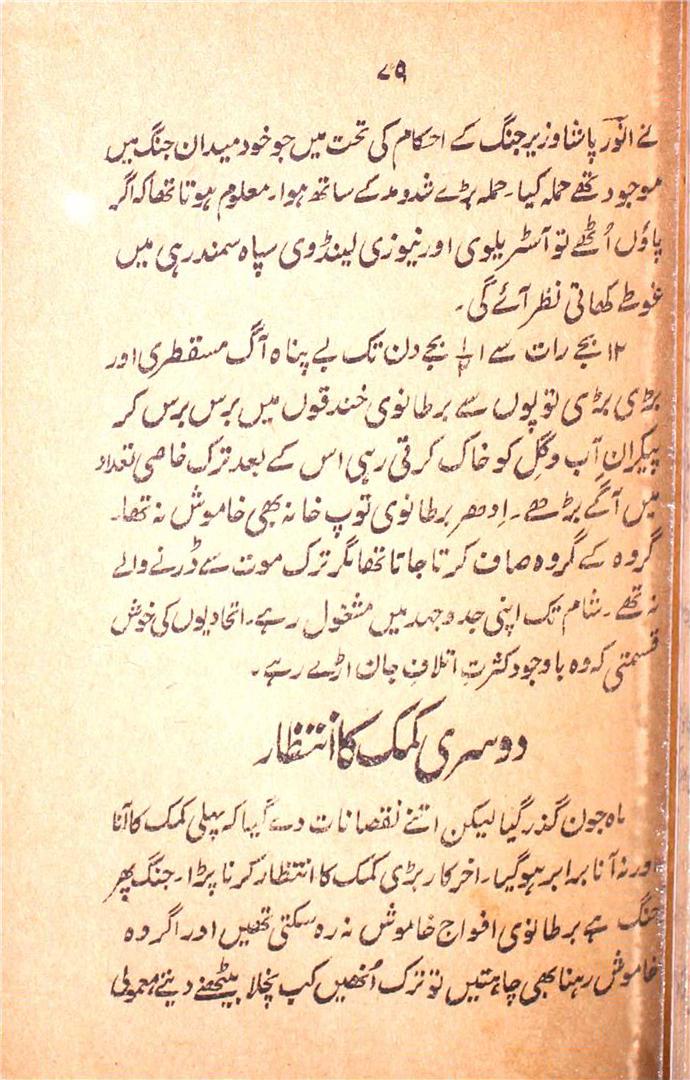 ۷۹
نے انور پاشا وزیر جنگ کے احکام کی تحت میں جو خود میدان جنگ میں
موجود تھے حملہ کیا۔ حملہ بڑے شد و مد کے ساتھ ہوا۔ معلوم ہوتا تھا کہ اگر
پاؤں اُٹھے تو آسٹریلوی اور نیوزی لینڈوی سپاہ سمندر ہی میں
غوطے کھاتی نظر آئے گی۔
۱۲ بجے رات سے بجے دن تک بے پناہ آگ مسقطری اور
بڑی بڑی توپوں سے برطانوی خندقوں میں برس برس کر
پیکرانِ آب و گِل کو خاک کرتی رہی اس کے بعد ترک خاصی تعداد
میں آگے بڑھے۔ اِدھر برطانوی توپ خانہ بھی خاموش نہ تھا۔
گروہ کے گروہ صاف کرتا جاتا تھا مگر ترک موت سے ڈرنے والے
نہ تھے۔ شام تک اپنی جدوجہد میں مشغول رہے۔ اتحادیوں کی خوش
قسمتی کہ وہ باوجود کثرتِ اتلافِ جان اڑے رہے۔
دوسری کمک کا انتظار
ماہ جون گذر گیا لیکن اتنے نقصانات دے گیا کہ پہلی کمک کا آنا
اور نہ آنا برابر ہوگیا۔ آخرکار بڑی کمک کا انتظار کرنا پڑا۔ جنگ پھر
جنگ ہے برطانوی افواج خاموش نہ رہ سکتی تھیں اور اگر وہ
خاموش رہنا بھی چاہتیں تو ترک اُنھیں کب نچلا بیٹھنے دیتے معمولی